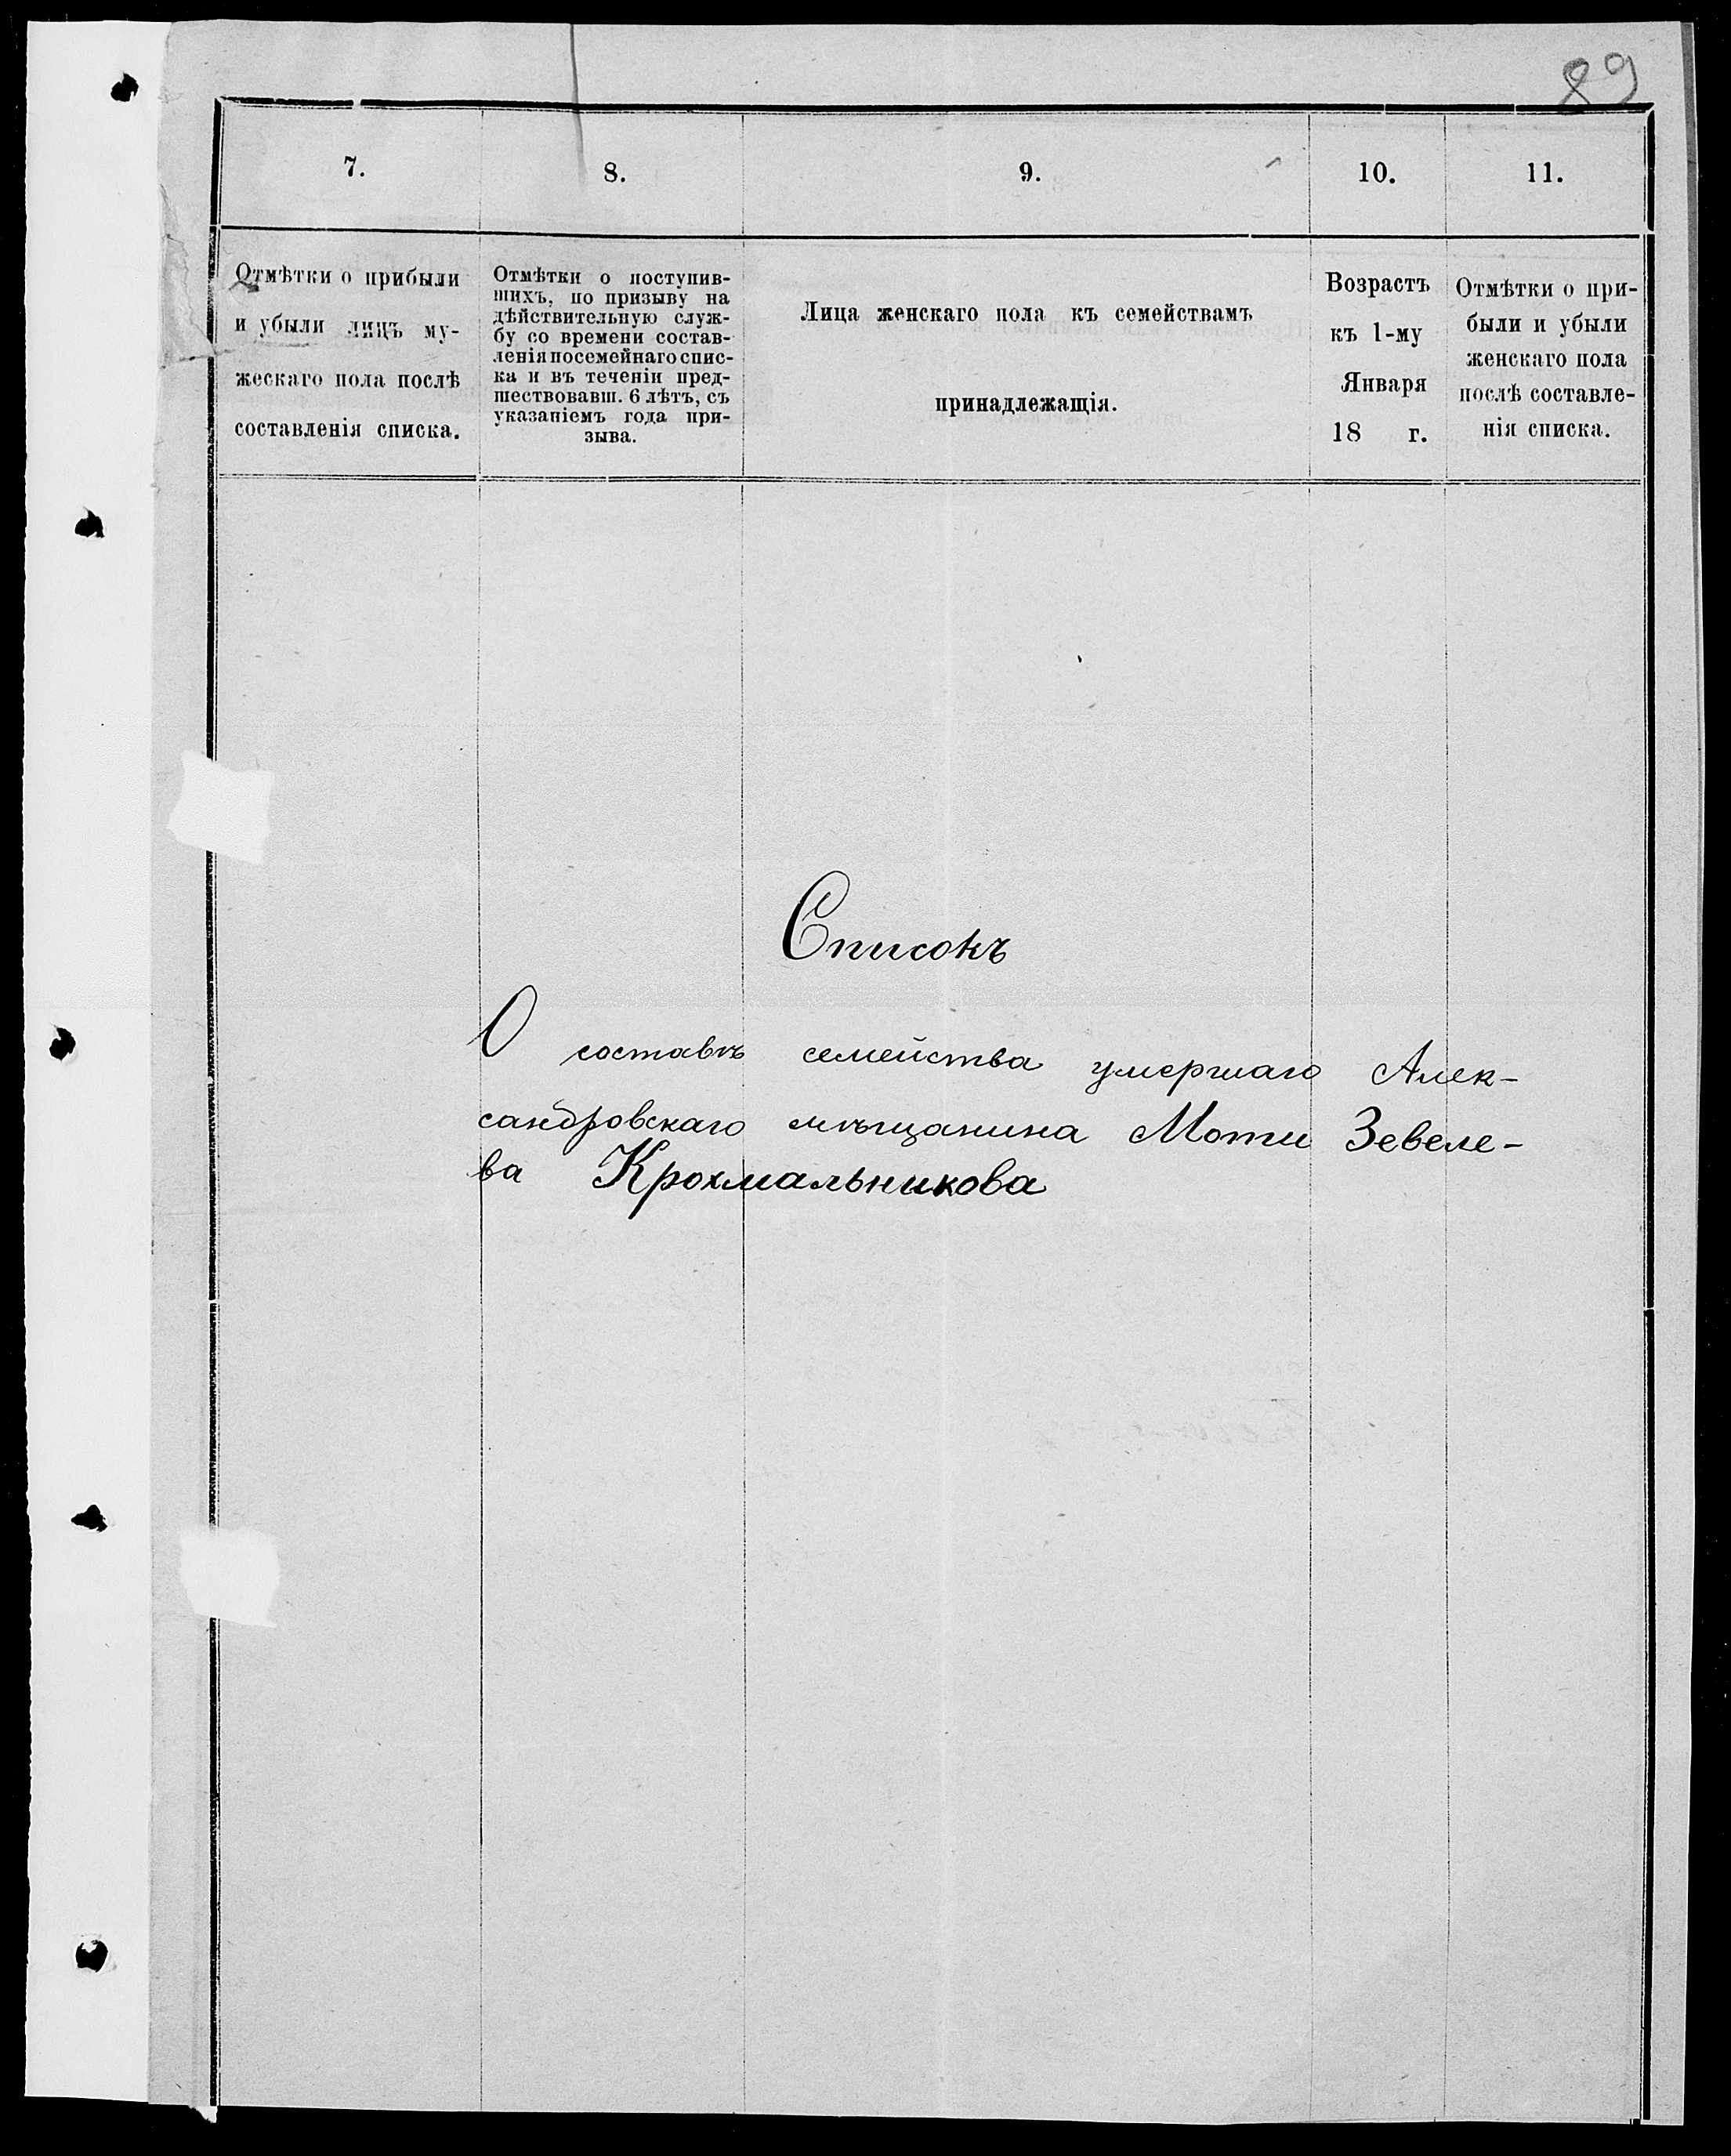 89
7.
8.
9.
10.
11.
Отмѣтки о прибыли
и убыли лицъ му-
жескаго пола послѣ
составленія списка.
Отмѣтки о поступив-
шихъ, по призыву на
дѣйствительную служ-
бу со времени состав-
ленія посемейнаго спис-
ка и въ теченіи пред-
шествовавш. 6 лѣтъ, съ
указаніемъ года при-
зыва.
Лица женскаго пола къ семействамъ
принадлежащія.
Возрастъ
къ 1-му
Января
18 г.
Отмѣтки о при-
были и убыли
женскаго пола
послѣ составле-
нія списка.
Списокъ
О составѣ семейства умершаго Алек-
сандровскаго мѣщанина Моти Зевеле-
ва Крохмальникова